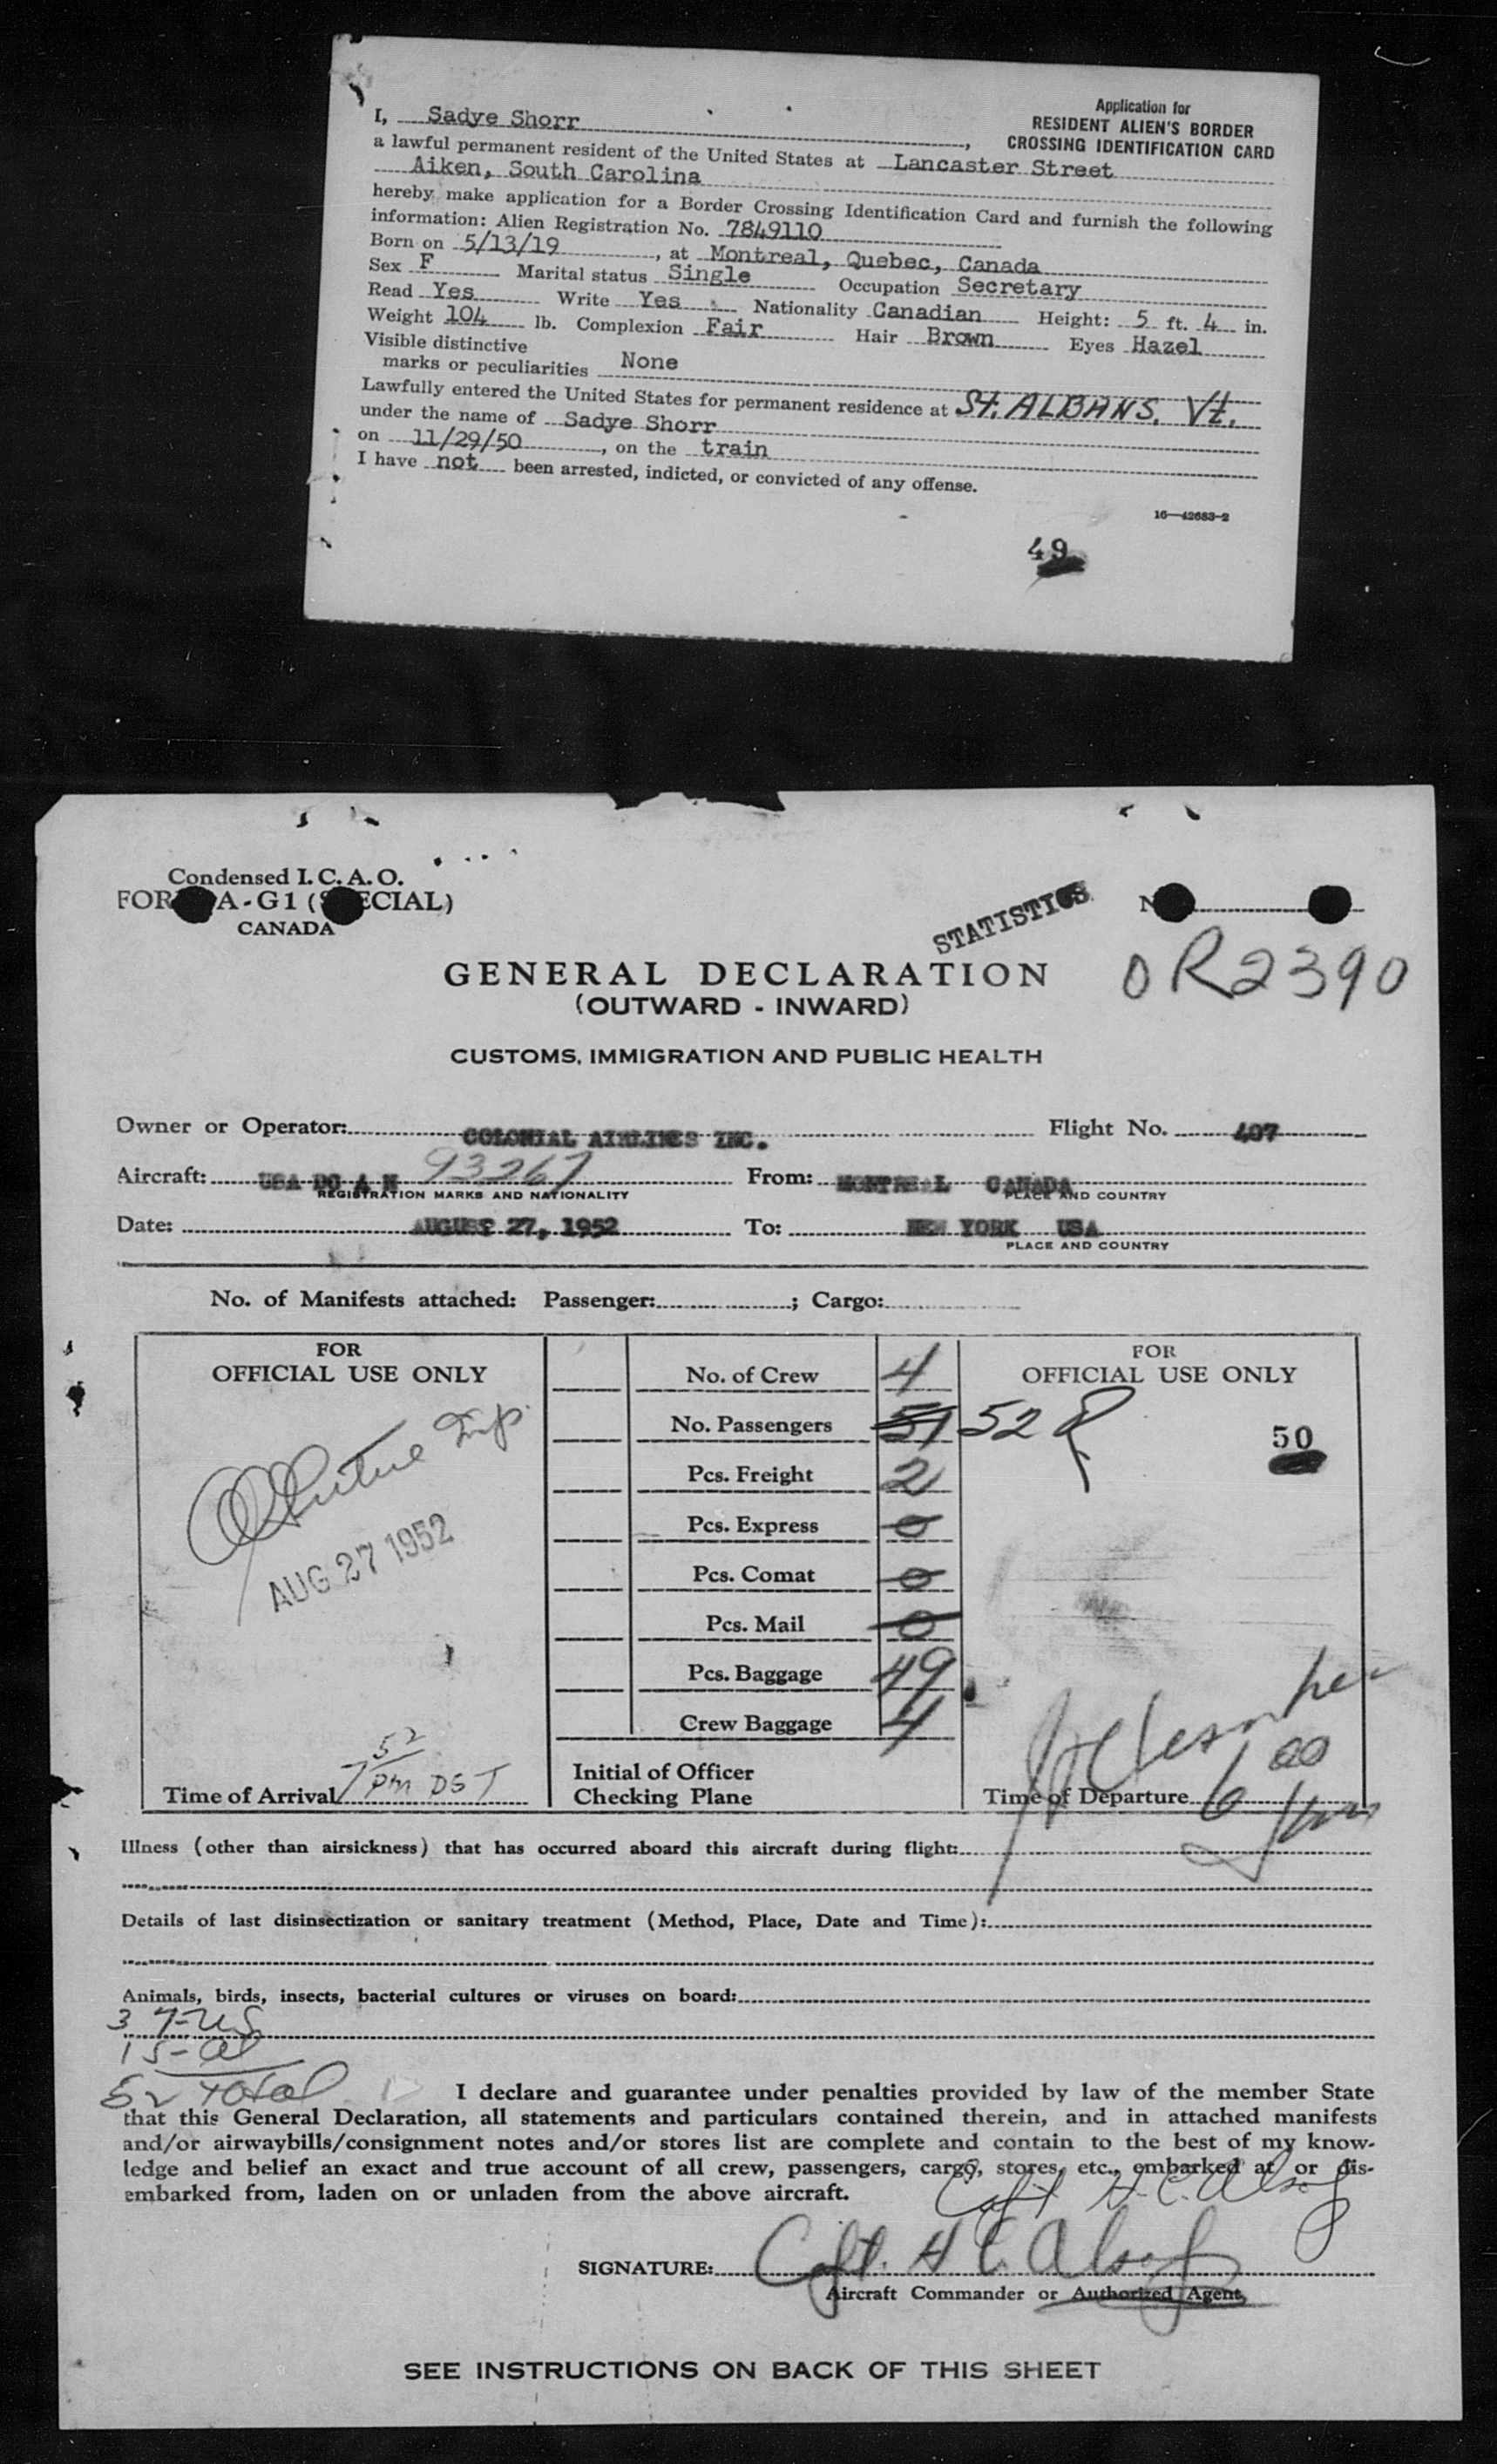 Application for
RESIDENT ALIEN'S BORDER
CROSSING IDENTIFICATION CARD
I, Sadye Shorr,
a lawful permanent resident of the United States at Lancaster Street
Aiken, South Carolina
hereby make application for a Border Crossing Identification Card and furnish the following
information: Alien Registration No. 7849110
Born on 5/13/19, at Montreal, Quebec, Canada
Sex F Marital status Single Occupation Secretary
Read Yes Write Yes Nationality Canadian Height: 5 ft. 4 in.
Weight 104 lb. Complexion Fair Hair Brown Eyes Hazel
Visible distinctive
marks or peculiarities None
Lawfully entered the United States for permanent residence at St. ALBANS, Vt.
under the name of Sadye Shorr
on 11/29/50, on the train
I have not been arrested, indicted, or convicted of any offense.
16—42683-2
49
Condensed I. C. A. O.
FOR A-G1 (S ECIAL)
CANADA
STATISTICS
N
OR2390
GENERAL DECLARATION
(OUTWARD - INWARD)
CUSTOMS, IMMIGRATION AND PUBLIC HEALTH
Owner or Operator: COLONIAL AIRLINES INC. Flight No. 407
Aircraft: USA DC 4 N 93267 From: MONTREAL CANADA
REGISTRATION MARKS AND NATIONALITY PLACE AND COUNTRY
Date: AUGUST 27, 1952 To: NEW YORK USA
PLACE AND COUNTRY
No. of Manifests attached: Passenger: ; Cargo:
FOR
OFFICIAL USE ONLY
AUG 27 1952
Time of Arrival 7 52 pm DST
No. of Crew 4
No. Passengers 51 52
Pcs. Freight 2
Pcs. Express 0
Pcs. Comat 0
Pcs. Mail 0
Pcs. Baggage 49
Crew Baggage 4
Initial of Officer
Checking Plane
FOR
OFFICIAL USE ONLY
50
Time of Departure 6 00
Illness (other than airsickness) that has occurred aboard this aircraft during flight:
Details of last disinsectization or sanitary treatment (Method, Place, Date and Time):
Animals, birds, insects, bacterial cultures or viruses on board:
37-US
15-al
52 total
I declare and guarantee under penalties provided by law of the member State
that this General Declaration, all statements and particulars contained therein, and in attached manifests
and/or airwaybills/consignment notes and/or stores list are complete and contain to the best of my know-
ledge and belief an exact and true account of all crew, passengers, cargo, stores, etc., embarked at or dis-
embarked from, laden on or unladen from the above aircraft.
Capt H.C. Alsop
SIGNATURE: Capt. H C. Alsop
Aircraft Commander or Authorized Agent
SEE INSTRUCTIONS ON BACK OF THIS SHEET